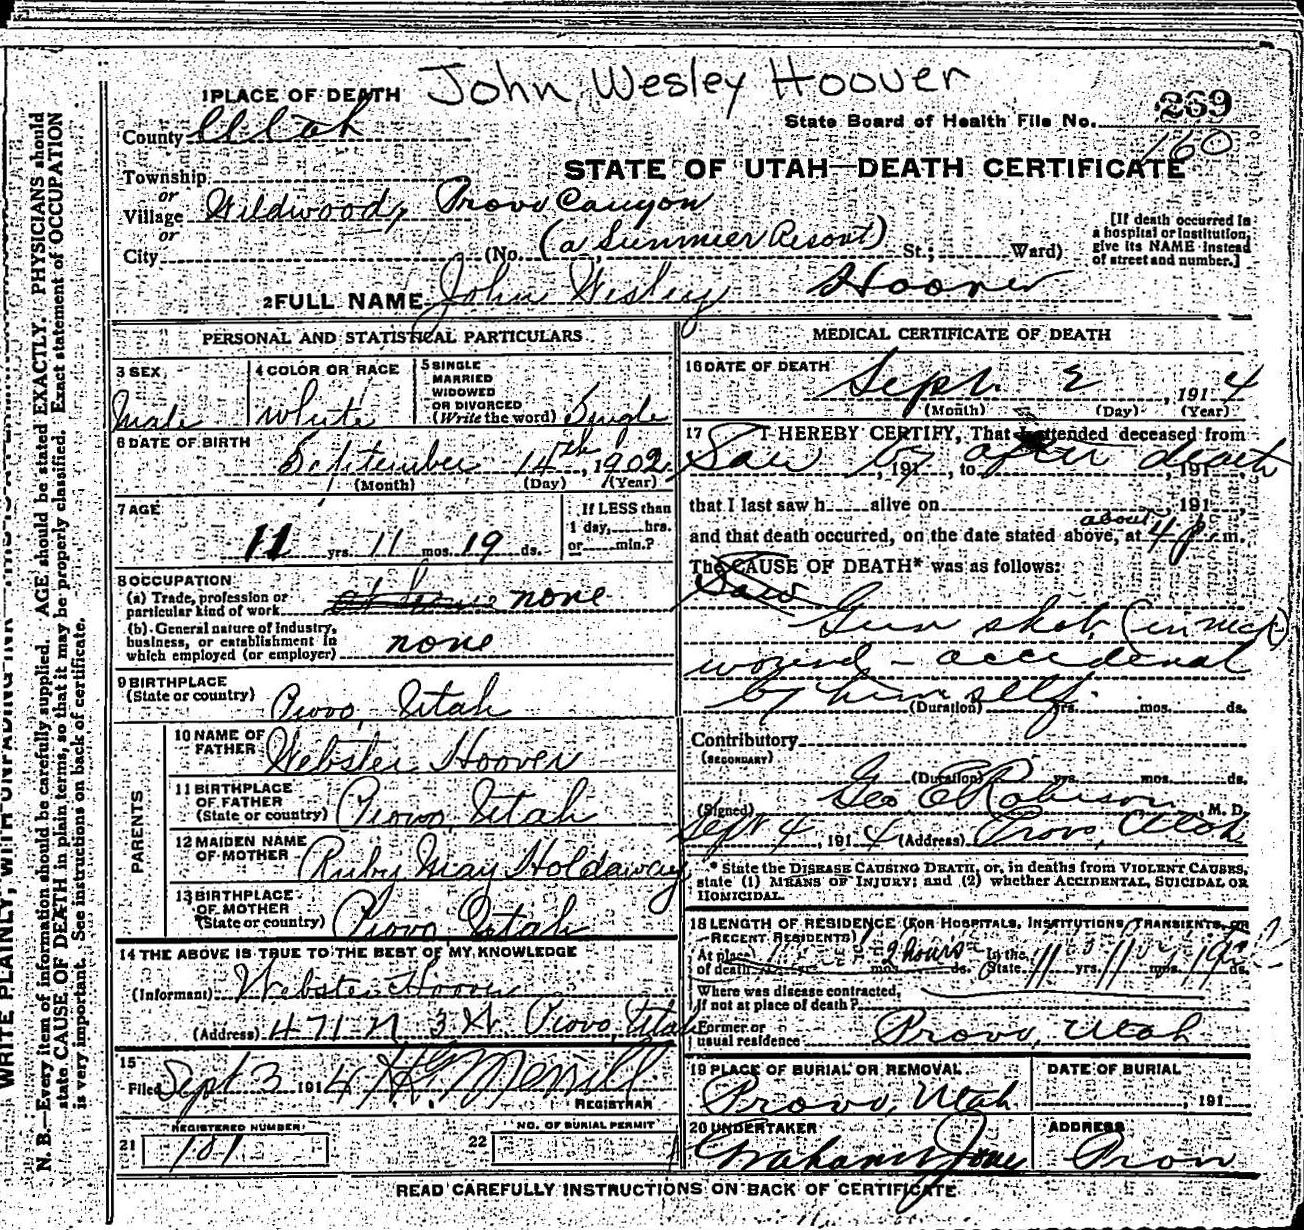 John Wesley Hoover
1 PLACE OF DEATH
269
State Board of Health File No.
160
County Utah
STATE OF UTAH—DEATH CERTIFICATE
Township
or
Village Wildwood, Provo Canyon
or
City (No. (a Summer Resort) St.; Ward)
[If death occurred in a hospital or institution, give its NAME instead of street and number.]
2 FULL NAME John Wesley Hoover
PERSONAL AND STATISTICAL PARTICULARS
3 SEX
Male
4 COLOR OR RACE
White
5 SINGLE
MARRIED
WIDOWED
OR DIVORCED
(Write the word) Single
6 DATE OF BIRTH
September 14th, 1902
(Month) (Day) (Year)
7 AGE
11 yrs. 11 mos. 19 ds.
If LESS than
1 day, hrs.
or min.?
8 OCCUPATION
(a) Trade, profession or
particular kind of work none
(b) General nature of industry,
business, or establishment in
which employed (or employer) none
9 BIRTHPLACE
(State or country) Provo, Utah
PARENTS
10 NAME OF
FATHER Webster Hoover
11 BIRTHPLACE
OF FATHER
(State or country) Provo Utah
12 MAIDEN NAME
OF MOTHER Ruby May Holdaway
13 BIRTHPLACE
OF MOTHER
(State or country) Provo Utah
14 THE ABOVE IS TRUE TO THE BEST OF MY KNOWLEDGE
(Informant) Webster Hoover
(Address) 471 N 3 W. Provo, Utah
15
Filed Sept 3 1914 Merrill
REGISTRAR
REGISTERED NUMBER
21
NO. OF BURIAL PERMIT
22
MEDICAL CERTIFICATE OF DEATH
16 DATE OF DEATH
Sept. 2, 1914
(Month) (Day) (Year)
17 I HEREBY CERTIFY, That I attended deceased from
Saw after death
, 191 , to , 191
that I last saw h alive on 191 ,
and that death occurred, on the date stated above, at about 4 p. m.
The CAUSE OF DEATH* was as follows:
Saw
Gun shot, (in neck)
wound - accidenal
by himself.
(Duration) yrs. mos. ds.
Contributory
(SECONDARY)
(Duration) yrs. mos. ds.
(Signed) Geo E Robison M. D.
Sept 4, 1914 (Address) Provo, Utah
* State the DISEASE CAUSING DEATH, or, in deaths from VIOLENT CAUSES,
state (1) MEANS OF INJURY; and (2) whether ACCIDENTAL, SUICIDAL OR
HOMICIDAL.
18 LENGTH OF RESIDENCE (FOR HOSPITALS, INSTITUTIONS, TRANSIENTS, OR
RECENT RESIDENTS)
At place
of death yrs. mos. 2 hours ds. In the
State 11 yrs. 11 mos. 19 ds.
Where was disease contracted,
if not at place of death?
Former or
usual residence Provo, Utah
19 PLACE OF BURIAL OR REMOVAL
Provo, Utah
DATE OF BURIAL
, 191
20 UNDERTAKER
ADDRESS
READ CAREFULLY INSTRUCTIONS ON BACK OF CERTIFICATE
N. B.—Every item of information should be carefully supplied. AGE should be stated EXACTLY. PHYSICIANS should
state CAUSE OF DEATH in plain terms, so that it may be properly classified. Exact statement of OCCUPATION
is very important. See instructions on back of certificate.
WRITE PLAINLY, WITH UNFADING INK